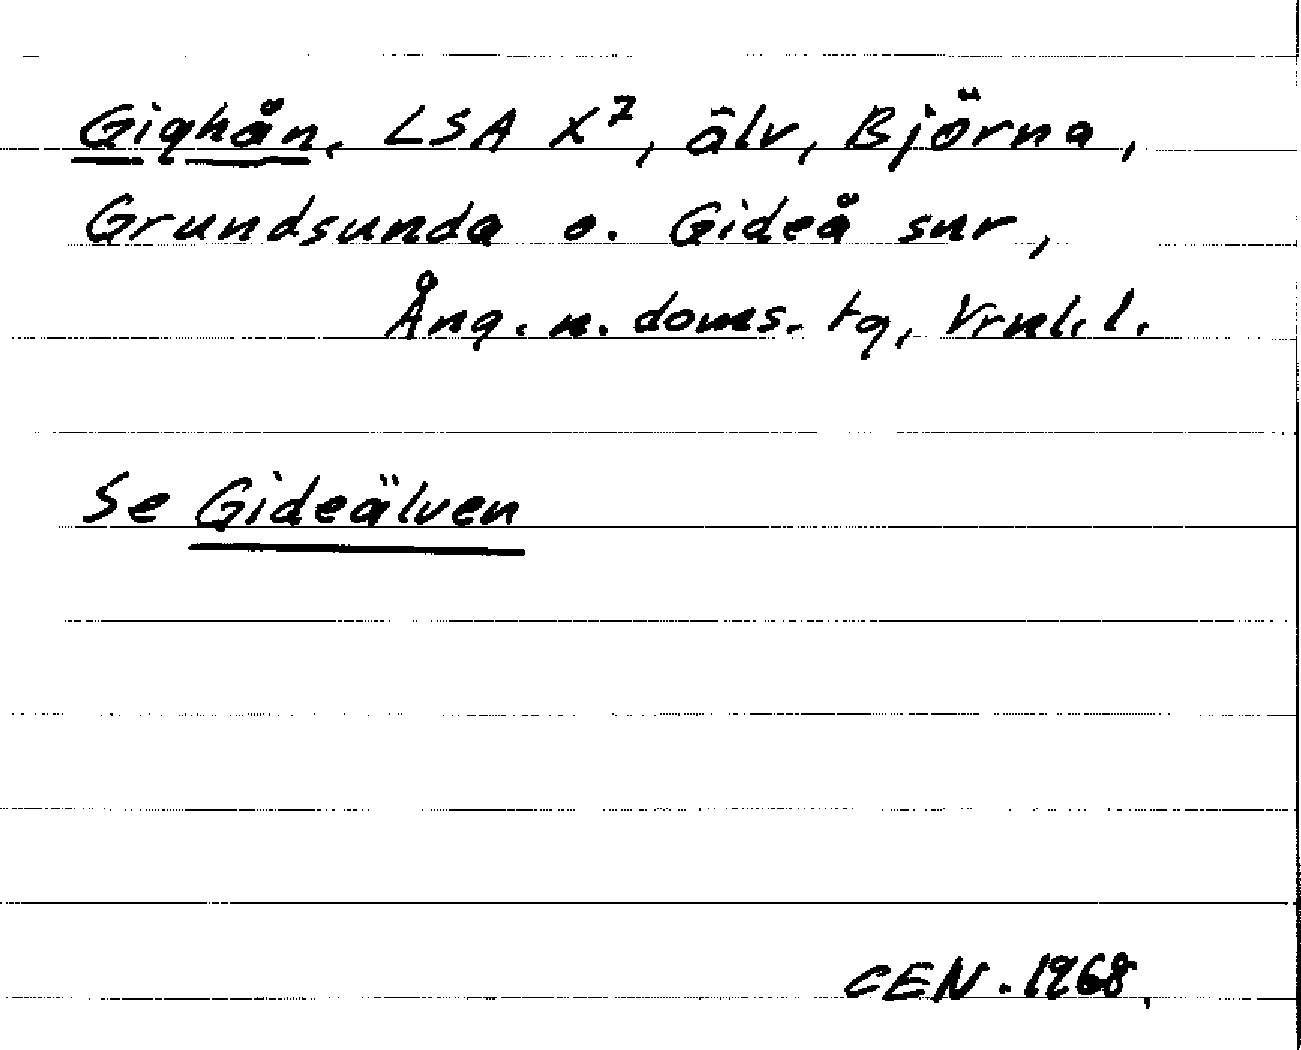 Gighån, LSA X7, älv, Björna,
Grundsunda o. Gideå snr,
Ång. n. doms. tg, Vrnl. l.
Se Gideälven
CEN. 1968.